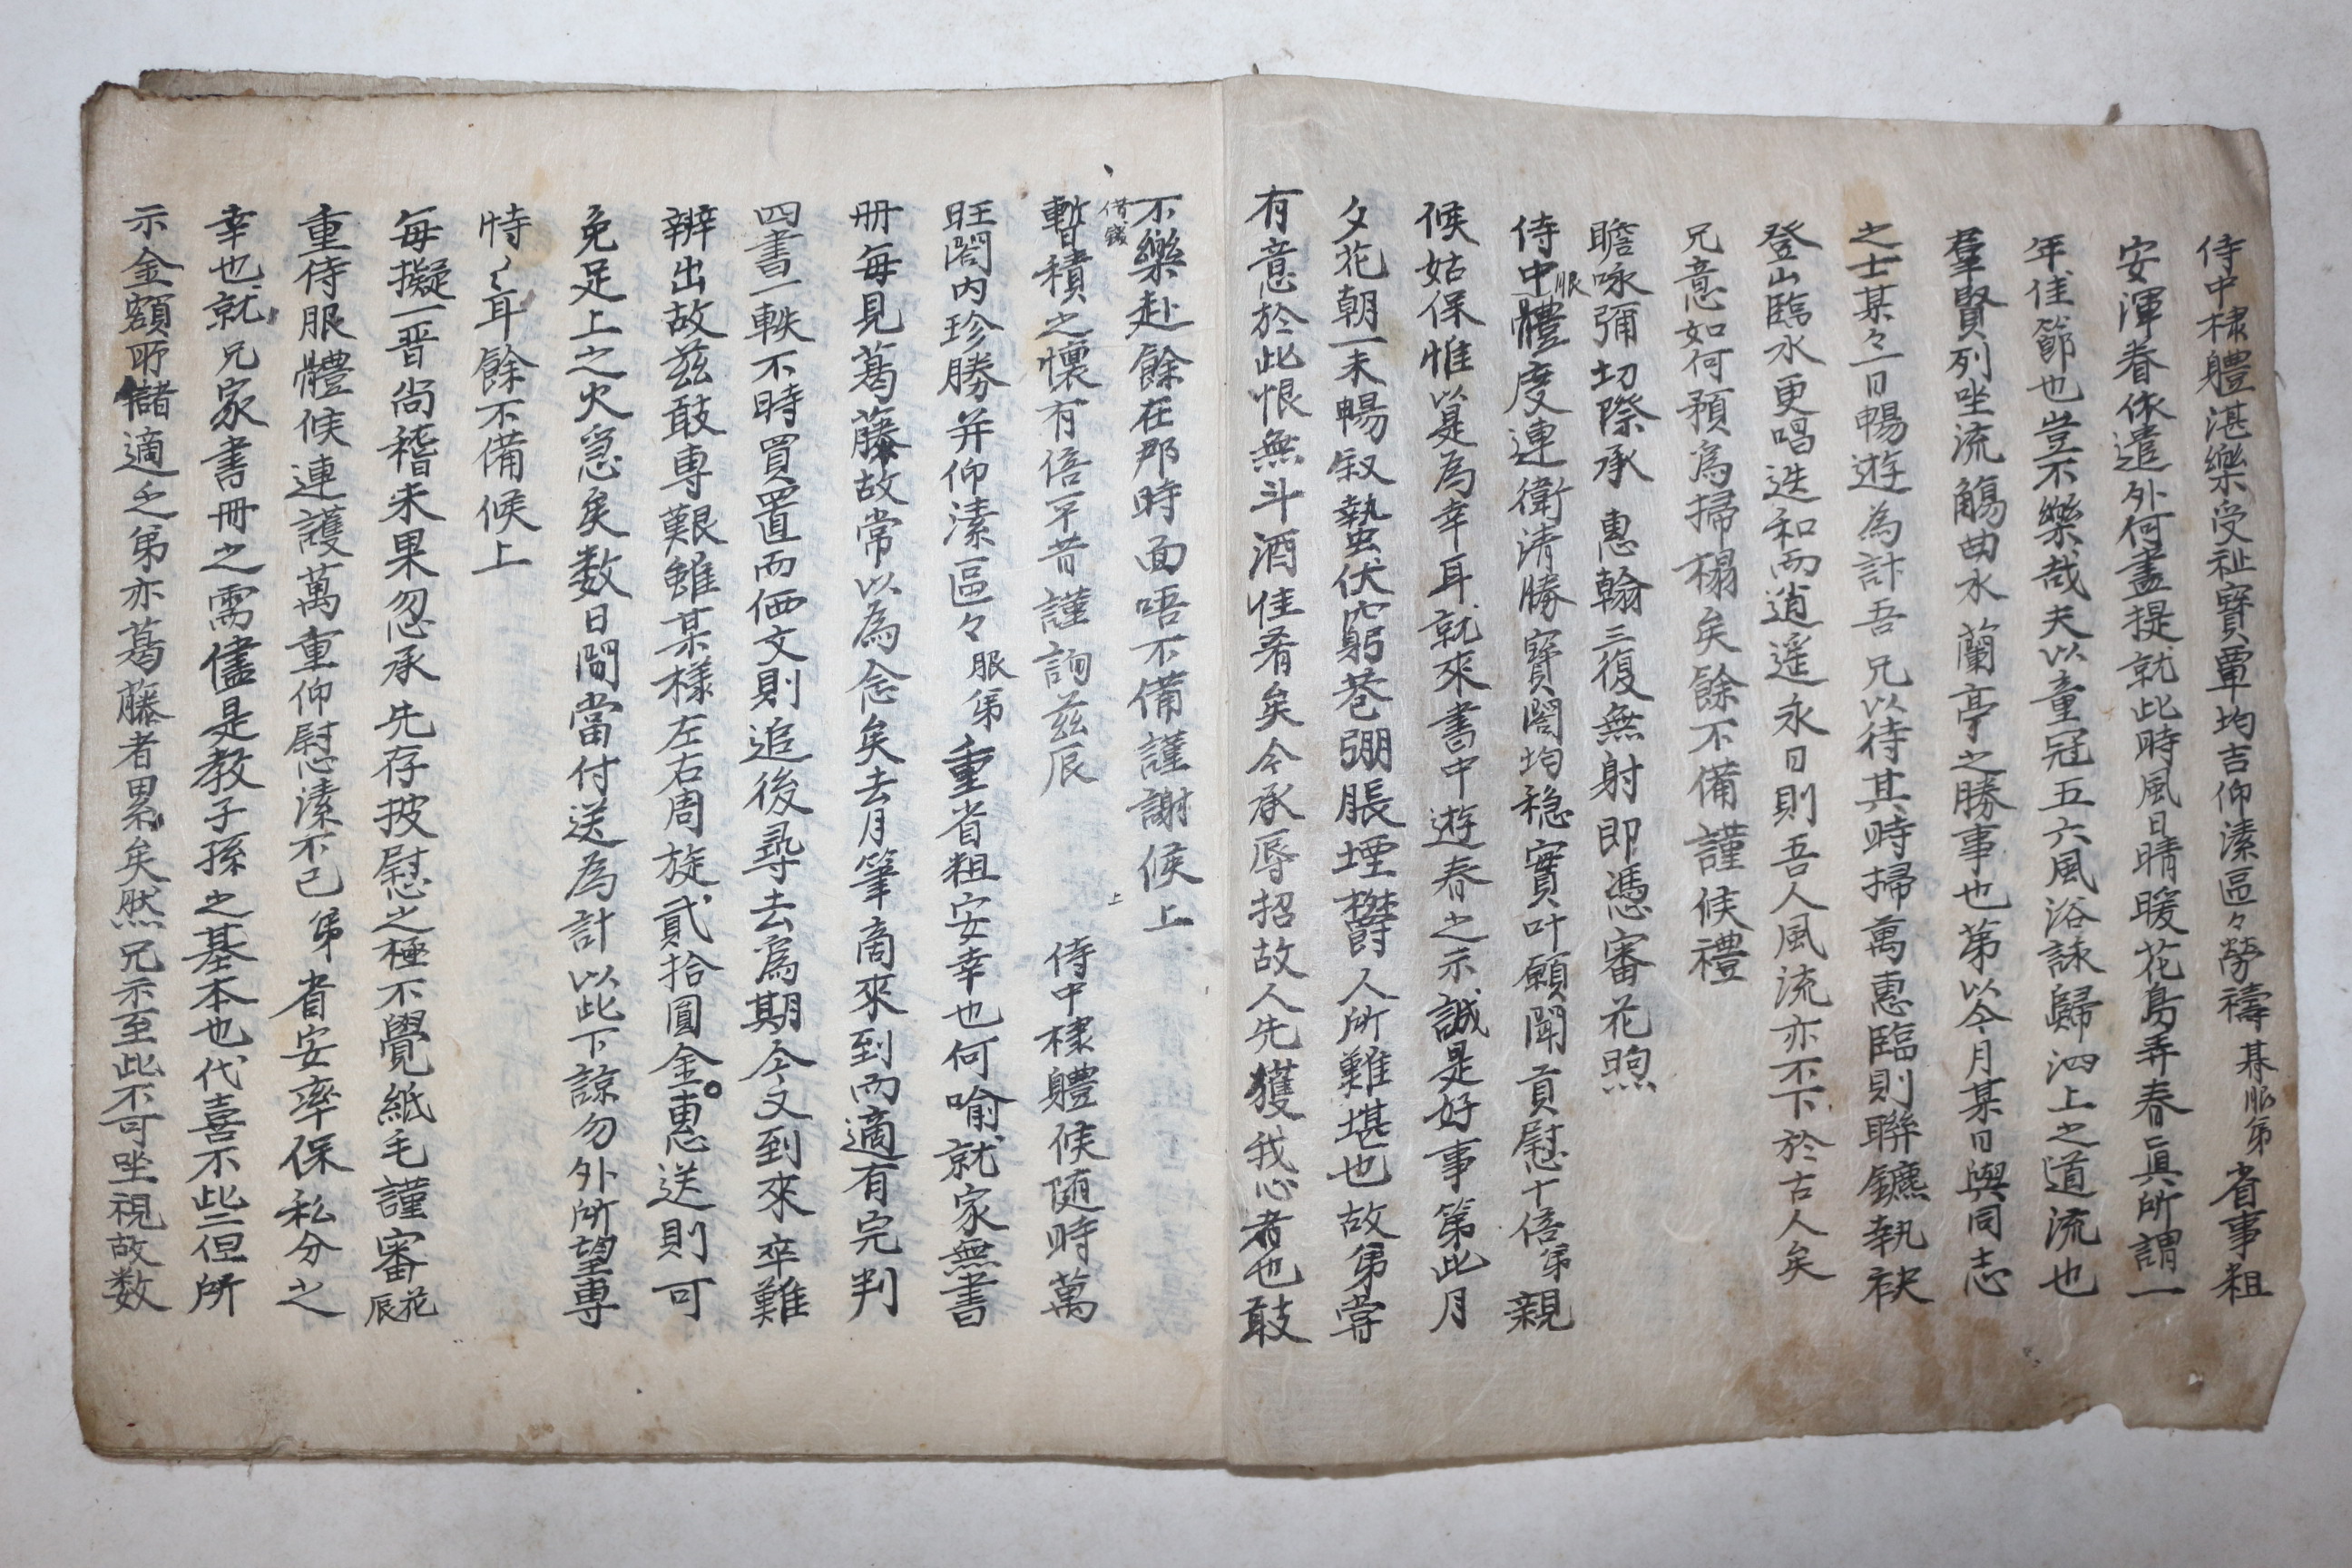 侍中棣軆湛樂受祉寶覃均吉仰溸區々勞禱朞服弟省事粗
安渾眷依遣外何盡提就此時風日晴暖花鳥弄春眞所謂一
年佳節也豈不樂哉夫以童冠五六風浴詠歸泗上之道流也
羣賢列坐流觴曲水蘭亭之勝事也苐以今月某日與同志
之士某々一日暢遊為計吾兄以待其時掃萬惠臨則聯鑣執袂
登山臨水更唱迭和而逍遙永日則吾人風流亦不下於古人矣
兄意如何預為掃榻矣餘不備謹候禮
瞻咏彌切際承惠翰三復無射即憑審花煦
侍中服體度連衛清勝寶閤均穩實叶願聞貢慰十倍弟親
候姑保惟以是為幸耳就來書中遊春之示誠是好事第此月
夕花朝一未暢叙蟄伏窮巷弸脹堙欝人所難堪也故弟嘗
有意於此恨無斗酒佳肴矣今承辱招故人先獲我心者也敢
不樂赴餘在那時面唔不備謹謝候上
借錢
暫積之懷有倍平昔謹詢玆辰上侍中棣軆候随時萬
旺閤内珍勝并仰溸區々服弟重省粗安幸也何喻就家無書
冊每見葛藤故常以為念矣去月筆商來到而適有完判
四書一軼不時買置而価文則追後尋去為期今又到來卒難
辨出故玆敢専艱雖某樣左右周旋貳拾圓金惠送則可
免足上之火急矣数日間當付送為計以此下諒勿外所望専
恃々耳餘不備候上
每擬一晋尚稽未果忽承先存披慰之極不覺紙毛謹審花辰
重侍服體候連護萬重仰慰溸不已弟省安率保私分之
幸也就兄家書冊之需儘是教子孫之基本也代喜不些二但所
示金額所儲適乏弟亦葛藤者累矣然兄示至此不可坐視故数